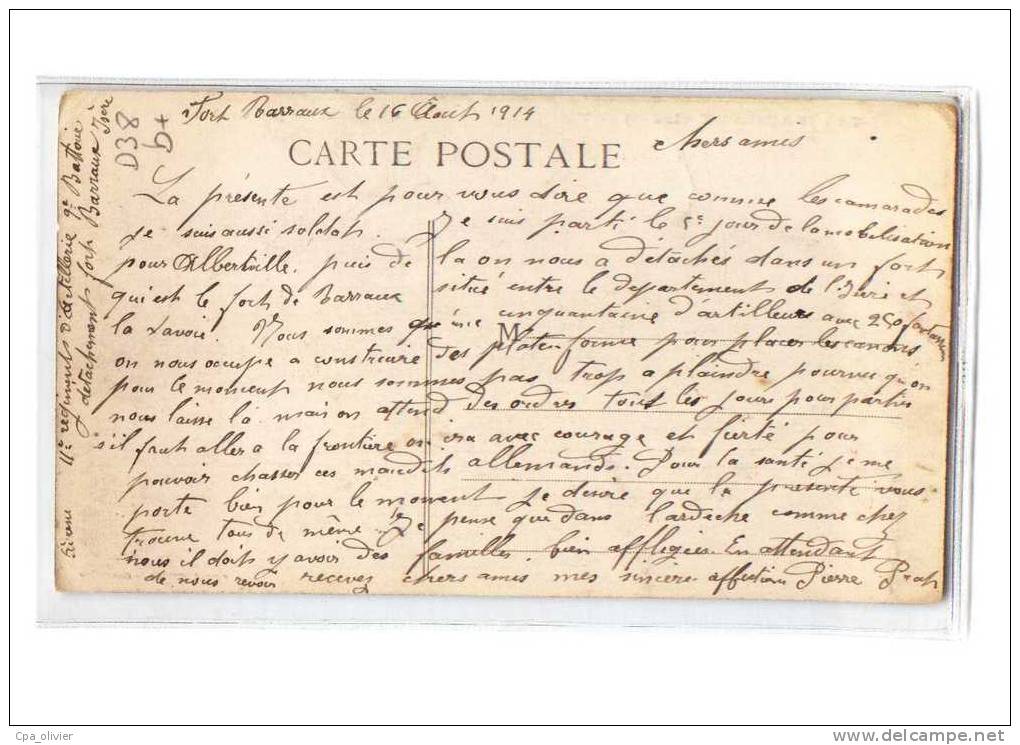 Fort Barraux le 16 Août 1914
CARTE POSTALE
chers amis
La présente est pour vous dire que comme les camarades
je suis aussi soldat. Je suis parti le 5e jour de la mobilisation
pour Albertville. puis de la on nous a détachés dans un fort
qui est le fort de Barraux situé entre le departement de l'Isère et
la Savoie. Nous sommes qu'une cinquantaine d'artilleurs avec 250 fantassins
M
on nous occupe a construire des plate-forme pour placer les canons
pour le moment nous sommes pas trop a plaindre pourvu qu'on
nous laisse là mais on attend des ordres tous les jours pour partir
s'il faut aller a la frontière on ira avec courage et fierté pour
pouvoir chasser ces maudits allemands. Pour la santé je me
porte bien pour le moment je désire que la présente vous
trouve tous de même. Je pense que dans l'ardèche comme chez
nous il doit y avoir des familles bien affligées. En attendant
de nous revoir recevez chers amis mes sincère affection Pierre Prat
11e regiments d'artillerie 9e Batterie
détachement fort Barraux Isère
D38
b+
Cpa_olivier
www.delcampe.net